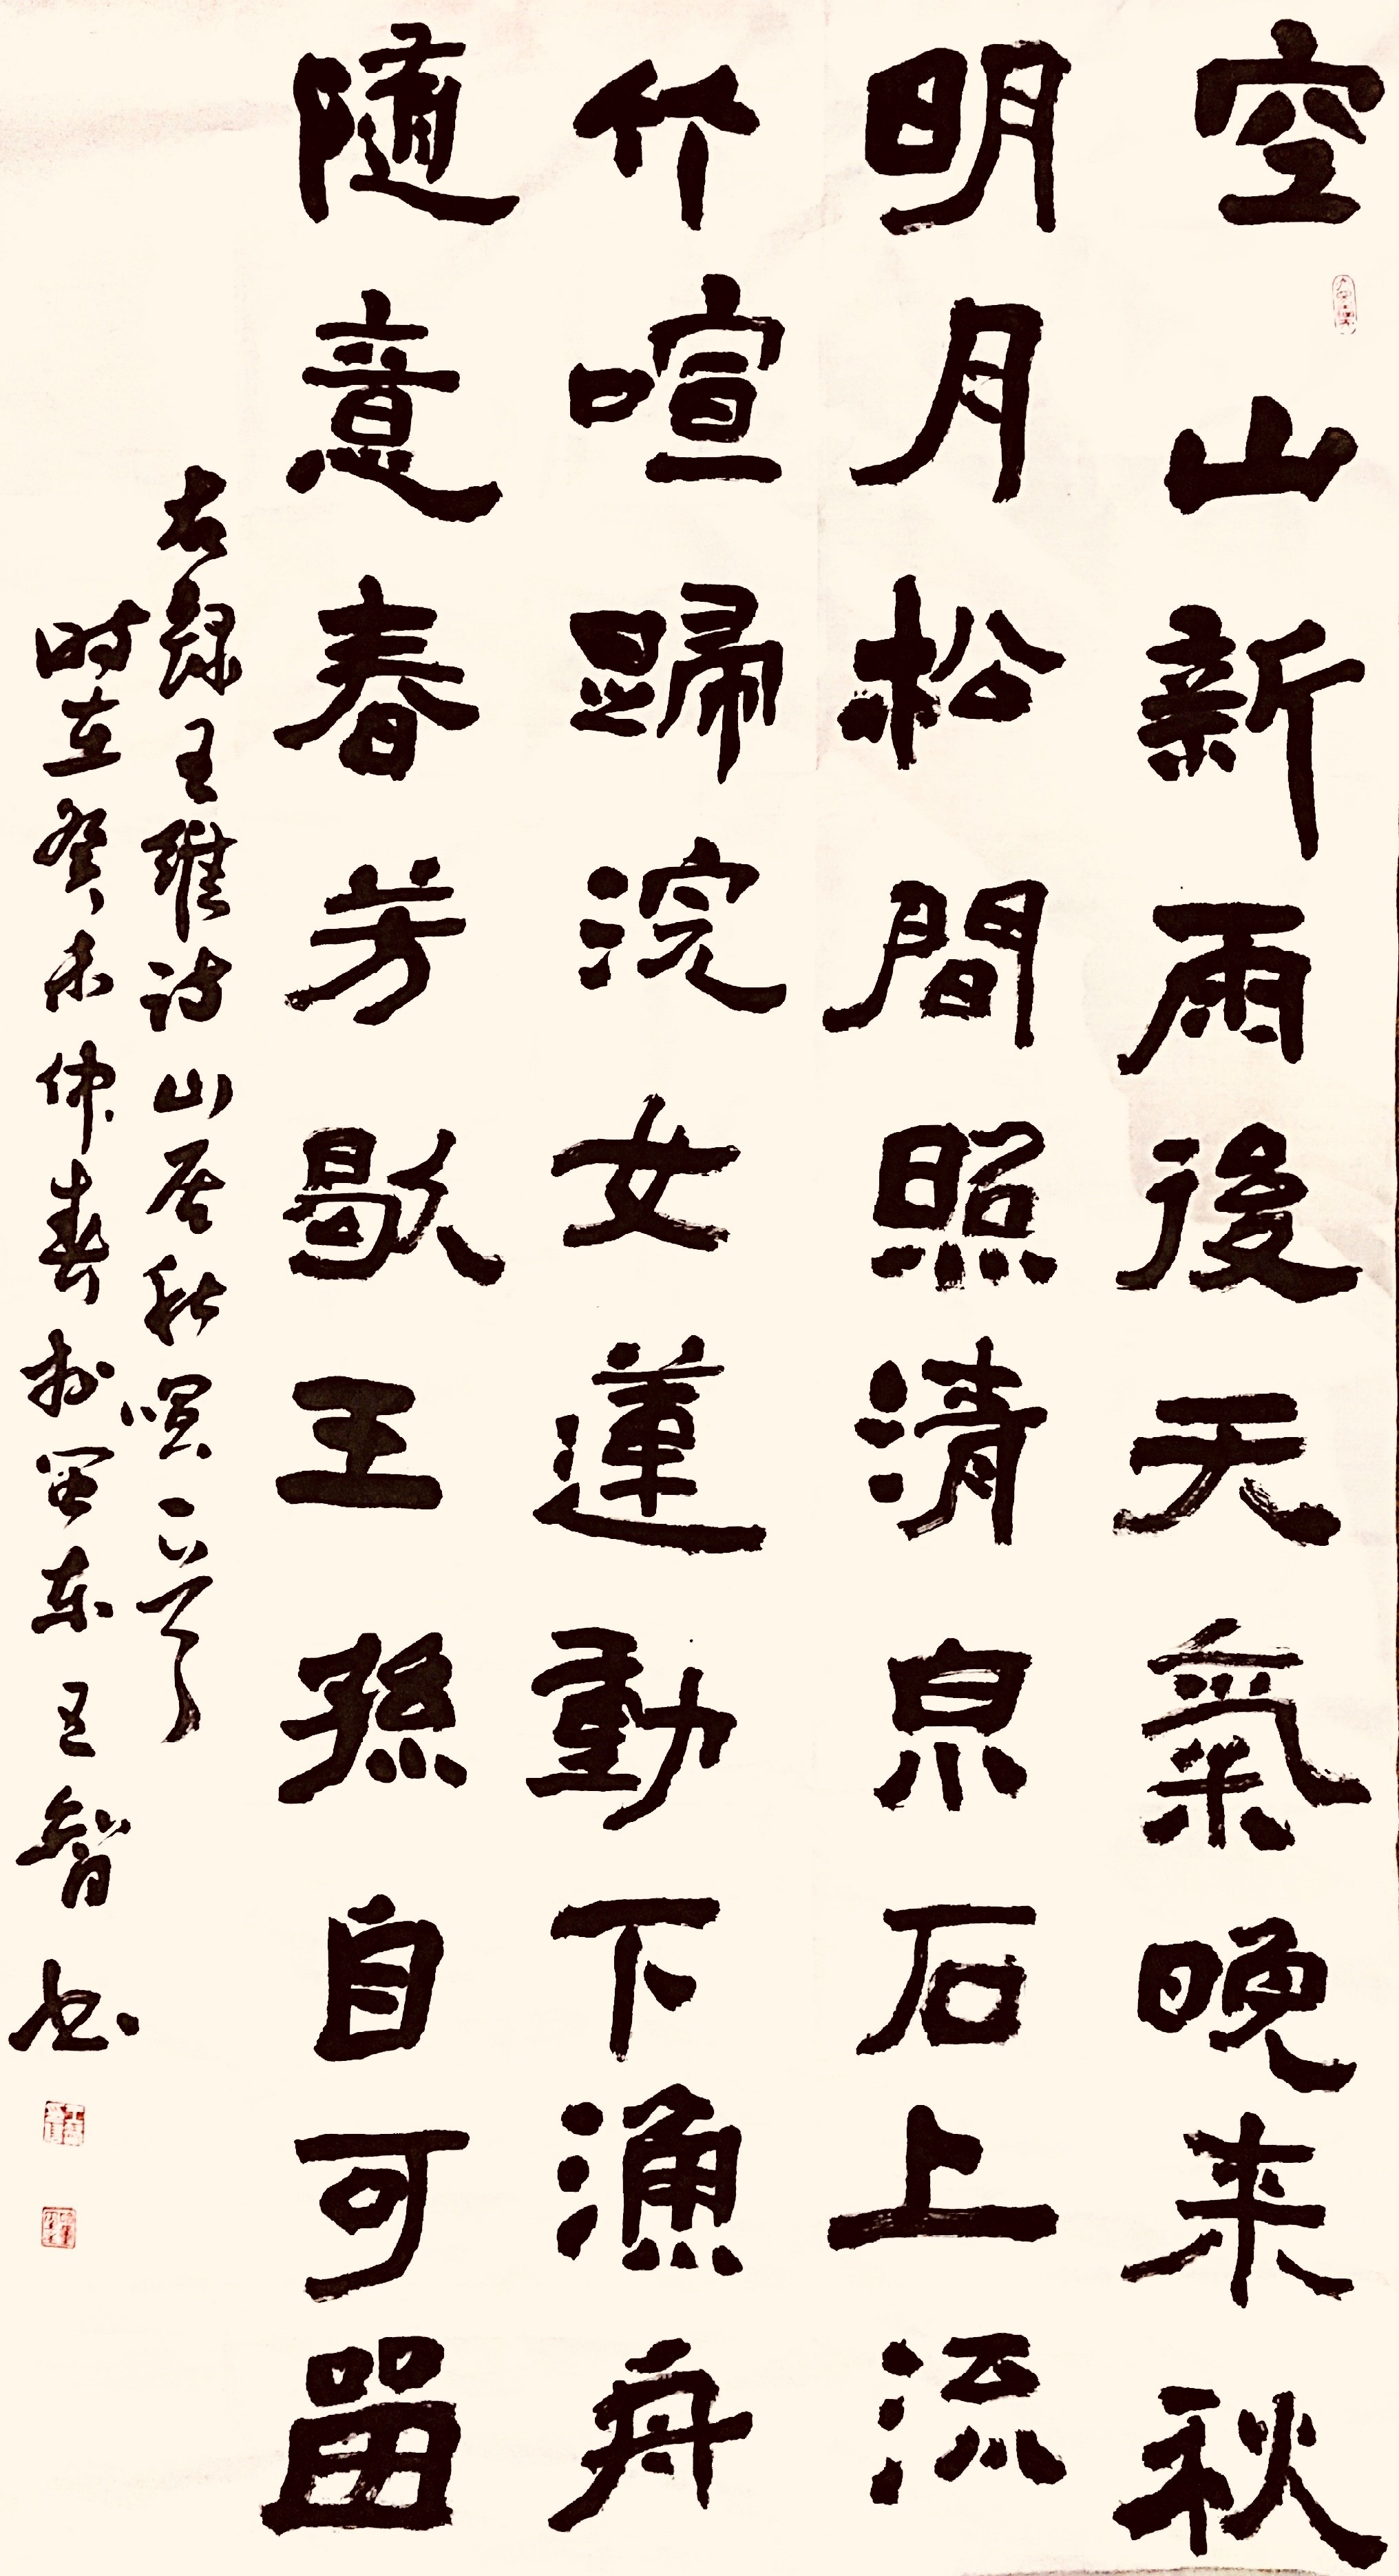 空山新雨後天氣晚来秋
明月松間照清泉石上流
竹喧歸浣女蓮動下漁舟
隨意春芳歇王孫自可留
右録王維詩山居秋暝一首
時在癸未仲春於閩东王智书